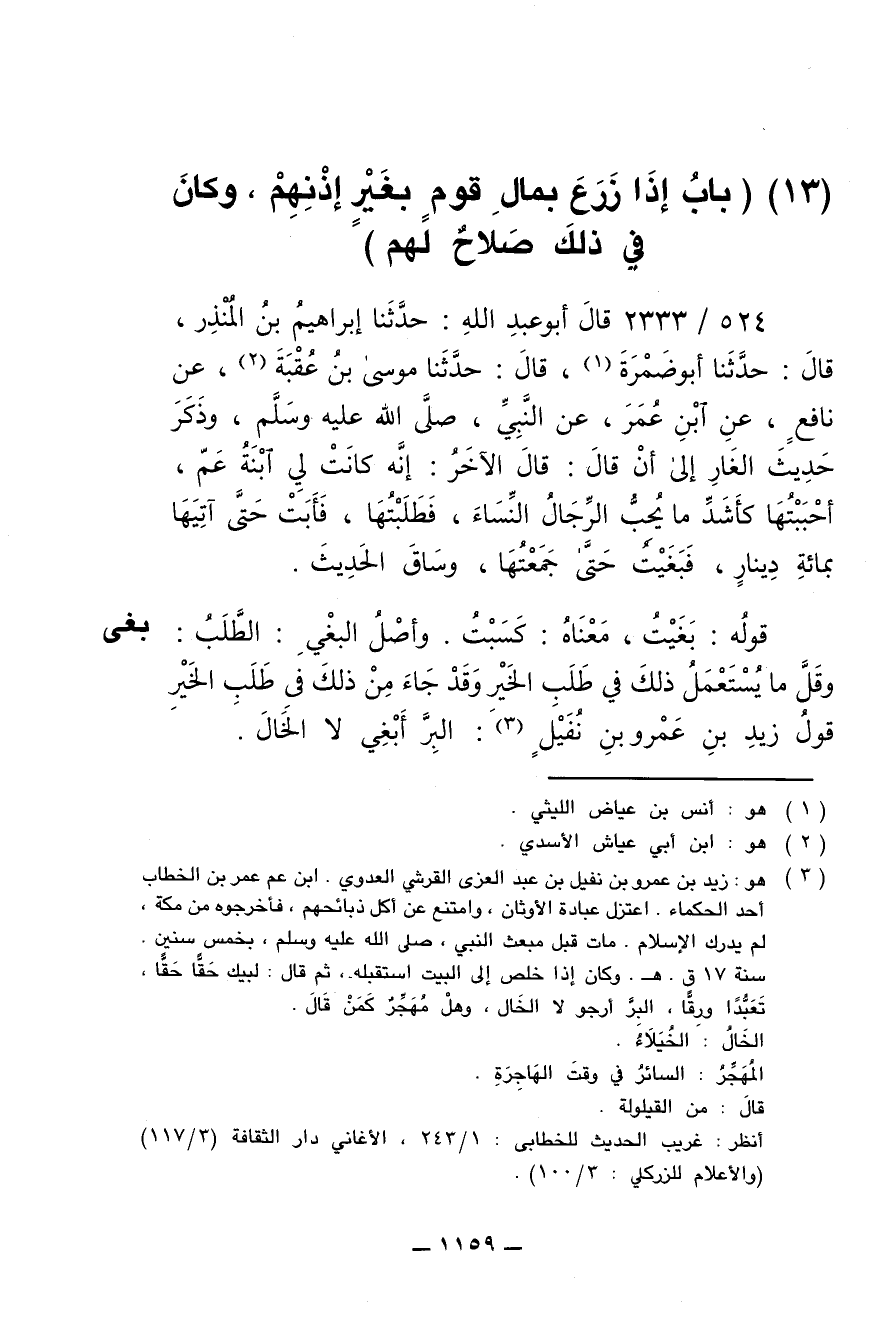 (١٣) ( بابُ إذَا زَرَعَ بمالِ قومٍ بغَيْرِ إذْنِهِمْ ، وكانَ
في ذلكَ صَلاحٌ لهم )
٥٢٤ / ٢٣٣٣ قالَ أبوعبدِ اللهِ : حدَّثَنا إبراهيمُ بنُ المُنْذِرِ ،
قالَ : حدَّثَنا أبوضَمْرَةَ (١) ، قالَ : حدَّثَنا موسىٰ بنُ عُقْبَةَ (٢) ، عن
نافعٍ ، عنِ آبْنِ عُمَرَ ، عن النَّبِيِّ ، صلَّى الله عليه وسَلَّم ، وذَكَرَ
حَدِيثَ الغَارِ إلىٰ أنْ قالَ : قالَ الآخَرُ : إنَّه كانَتْ لِي آبْنَةُ عَمّ ،
أحْبَبْتُهَا كأَشَدِّ ما يُحِبُّ الرِّجَالُ النِّسَاءَ ، فَطَلَبْتُهَا ، فَأَبَتْ حَتَّى آتِيَهَا
بمائةِ دِينارٍ ، فَبَغَيْتُ حَتَّىٰ جَمَعْتُهَا ، وسَاقَ الحَدِيثَ .
قولُه : بَغَيْتُ ، مَعْنَاهُ : كَسَبْتُ . وأصْلُ البغْيِ : الطَّلَبُ : بغى
وقَلَّ ما يُسْتَعْمَلُ ذلكَ في طَلَبِ الخَيْرِ وَقَدْ جَاءَ مِنْ ذلكَ في طَلَبِ الخَيْرِ
قولُ زيدِ بنِ عَمْروبنِ نُفَيْلٍ (٣) : البِرَّ أَبْغِي لا الخَالَ .
(١) هو : أنس بن عياض الليثي .
(٢) هو : ابن أبي عياش الأسدي .
(٣) هو : زيد بن عمرو بن نفيل بن عبد العزى القرشي العدوي . ابن عم عمر بن الخطاب
أحد الحكماء . اعتزل عبادة الأوثان ، وامتنع عن أكل ذبائحهم ، فأخرجوه من مكة ،
لم يدرك الإسلام . مات قبل مبعث النبي ، صلى الله عليه وسلم ، بخمس سنين .
سنة ١٧ ق . هـ . وكان إذا خلص إلى البيت استقبله ، ثم قال : لبيك حَقًّا حَقًّا ،
تَعَبُّدًا ورِقًّا ، البرَّ أرجو لا الخَال ، وهلْ مُهَجِّرٌ كَمَنْ قَالَ .
الخَالُ : الخُيَلَاءُ .
المُهَجِّرُ : السائرُ في وقتَ الهَاجِرَةِ .
قالَ : من القيلولة .
أنظر : غريب الحديث للخطابى : ٢٤٣/١ ، الأغاني دار الثقافة (١١٧/٣)
(والأعلام للزركلي : ١٠٠/٣) .
— ١١٥٩ —